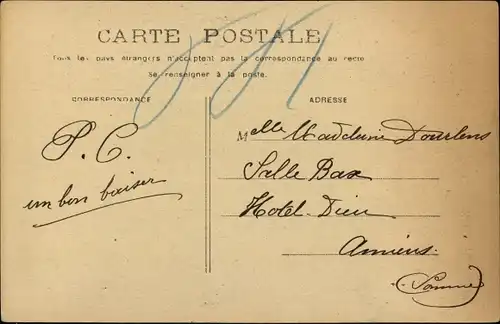 CARTE POSTALE
Tous les pays étrangers n'acceptent pas la correspondance au recto
Se renseigner à la poste.
CORRESPONDANCE
ADRESSE
P. C.
un bon baiser
Melle Madeleine Dourlens
Salle Bax
Hotel-Dieu
Amiens.
(Somme)